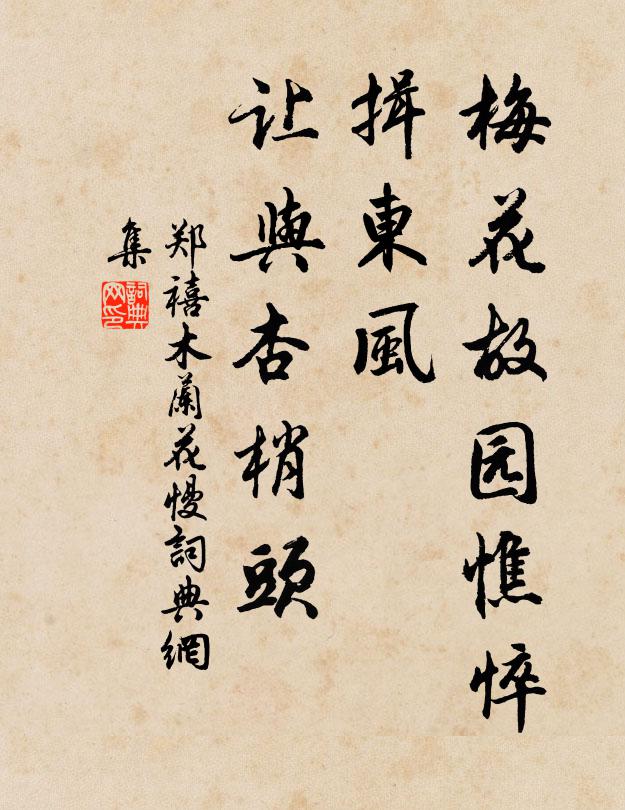 梅花故园憔悴
揖東風
让與杏梢頭
郑禧木蘭花慢詞典網
集
詞典网印